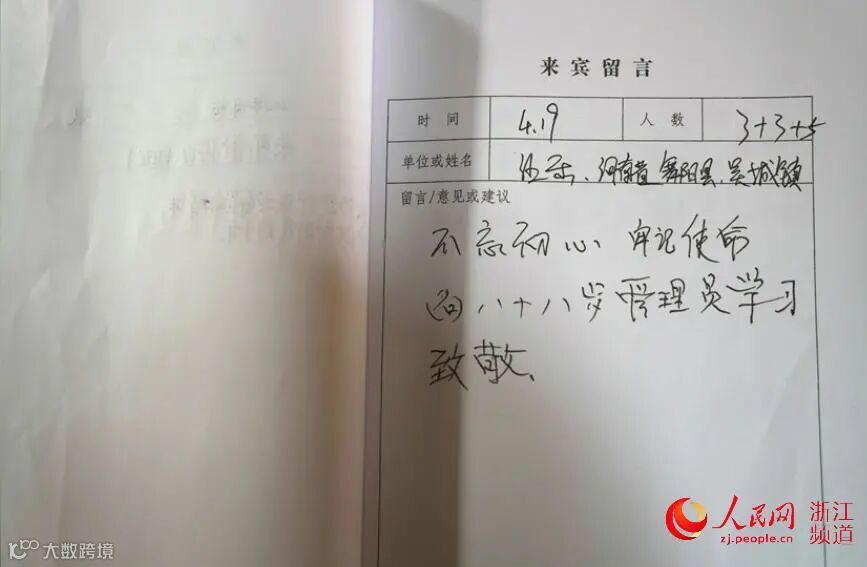 来宾留言
时间 4.19 人数 3+3+5
单位或姓名 河南省舞阳县吴城镇
留言/意见或建议
不忘初心 牢记使命
向八十八岁管理员学习
致敬、
人民网 浙江频道
zj.people.cn
大数跨境